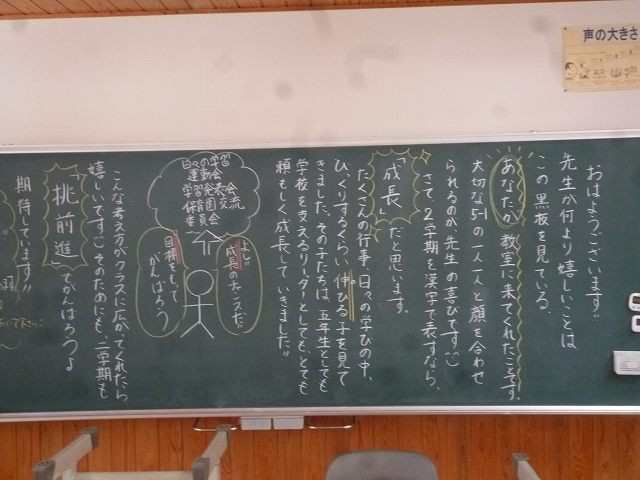 声の大きさ
おはようございます!!
先生が何より嬉しいことは
この黒板を見ている、
あなたが教室に来てくれたことです。
大切な5-1の一人一人と顔を合わせ
られるのが、先生の喜びです
さて、2学期を漢字で表すなら、
「成長」だと思います。
たくさんの行事、日々の学びの中、
びっくりするくらい伸びる子を見て
きました。その子たちは、五年生としても
学校を支えるリーダーとしても、とても
頼もしく成長していきました!!
日々の学習
運動会
学習発表会
保育園交流
委員会
よし!!
成長のチャンスだ!!
目標をもって
がんばろう
こんな考え方がクラスに広がってくれたら
嬉しいです そのためにも、二学期も
「挑前進」でがんばろうね
期待しています!!